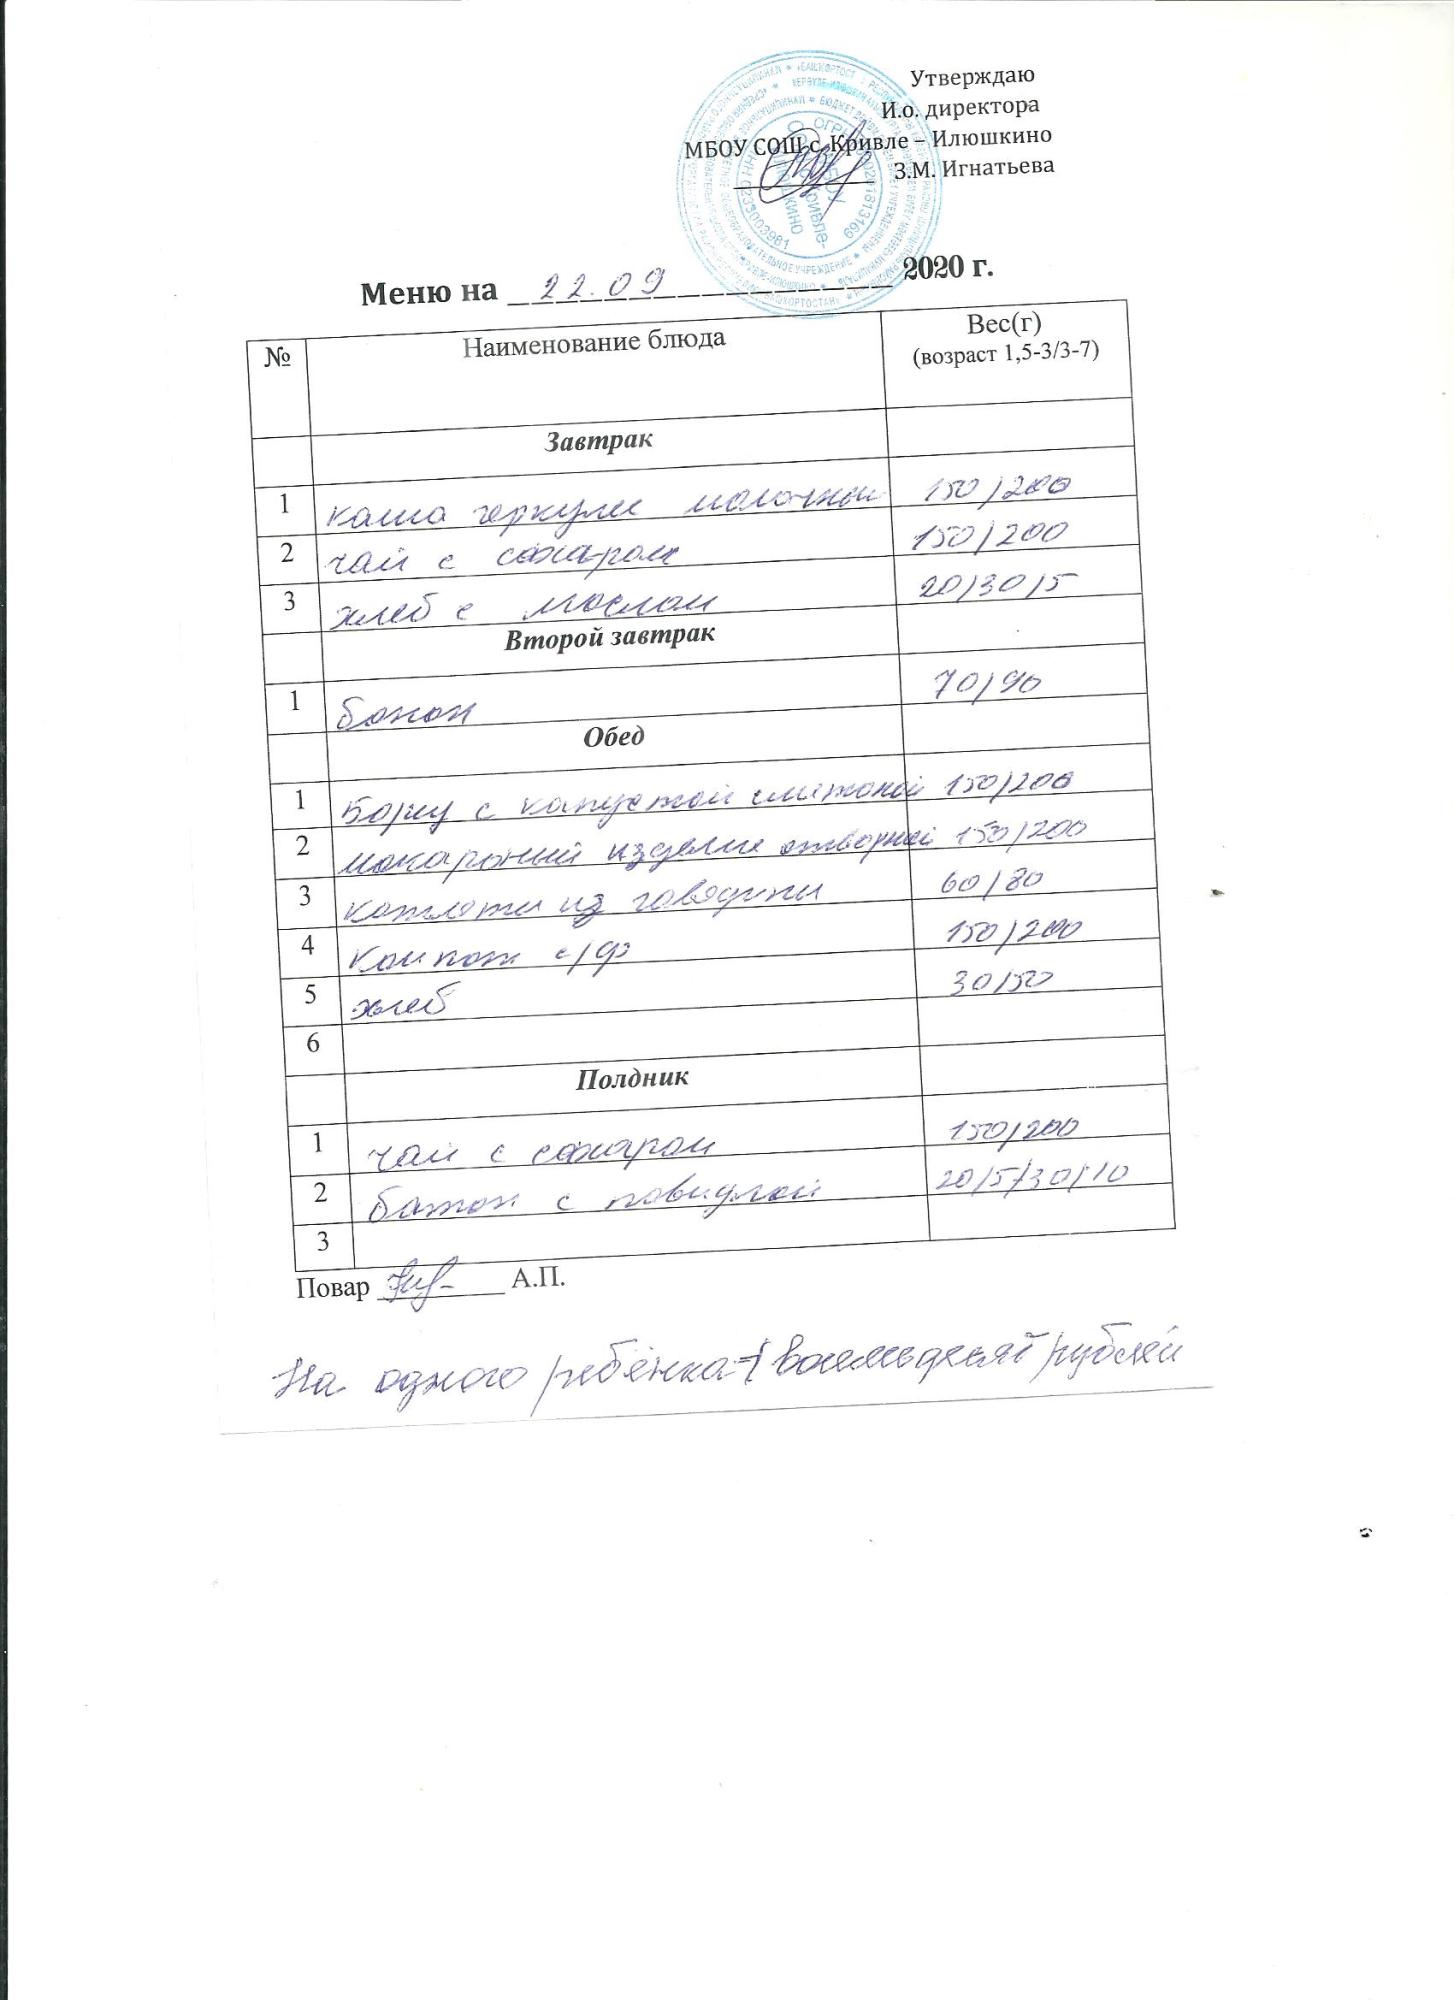 Утверждаю
И.о. директора
МБОУ СОШ с. Кривле – Илюшкино
З.М. Игнатьева
Меню на 22.09 2020 г.
№ Наименование блюда Вес(г)
(возраст 1,5-3/3-7)
Завтрак
1 каша геркулес молочный 150/200
2 чай с сахаром 150/200
3 хлеб с маслом 20/30/5
Второй завтрак
1 банан 70/90
Обед
1 Борщ с капустой сметаной 150/200
2 макароный изделие отворной 150/200
3 котлеты из говядины 60/80
4 Компот с/ф 150/200
5 хлеб 30/50
6
Полдник
1 чай с сахаром 150/200
2 батон с повидлой 20/5/30/10
3
Повар А.П.
На одного ребёнка - восемьдесят рублей